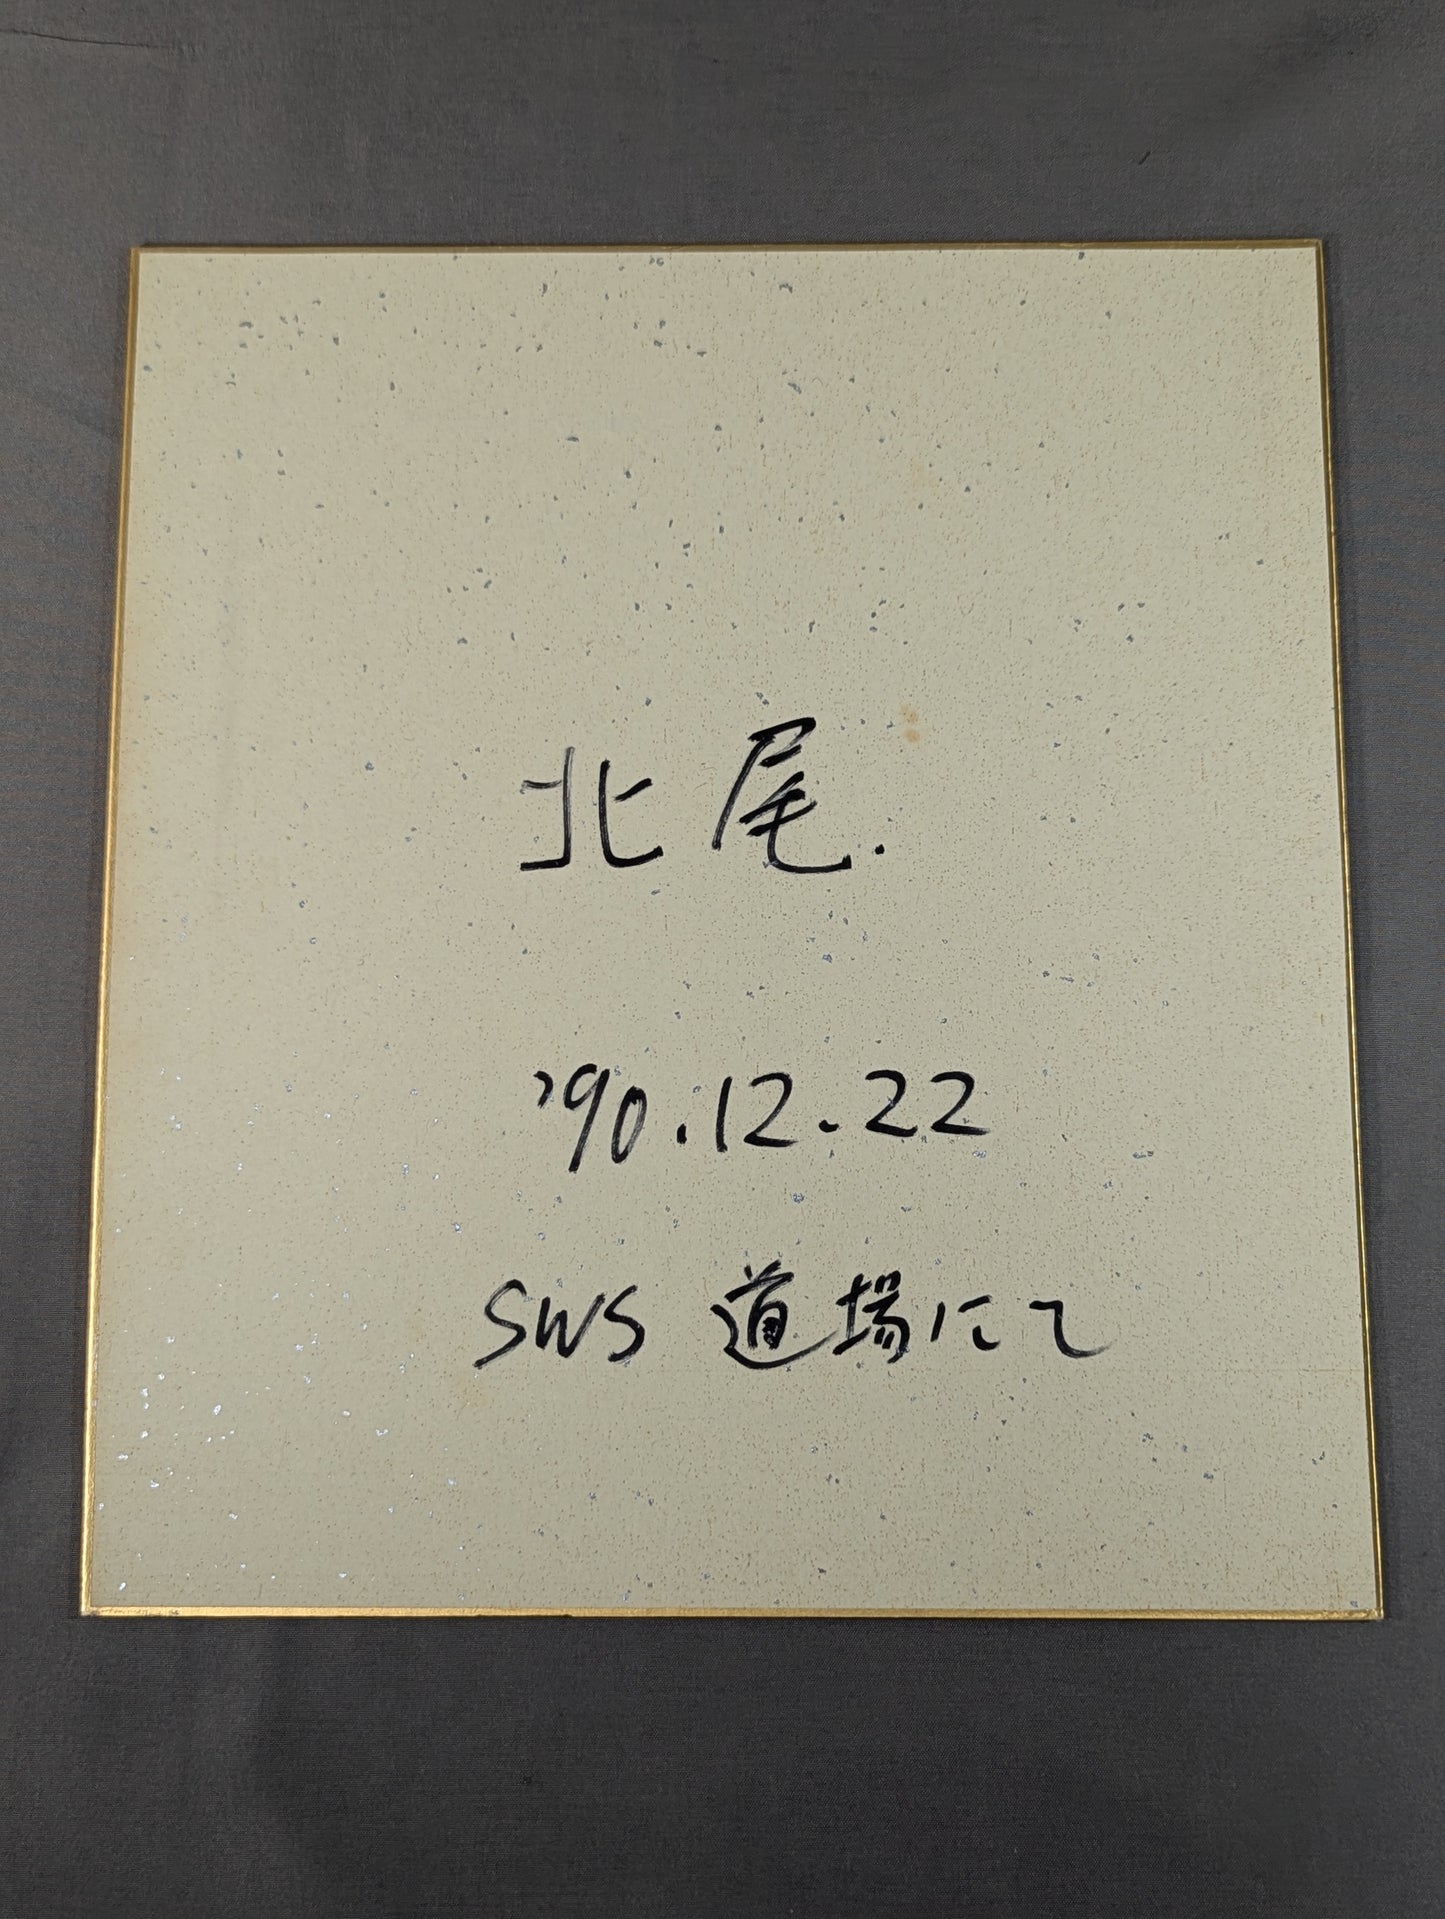 北尾.
'90.12.22
SWS 道場にて